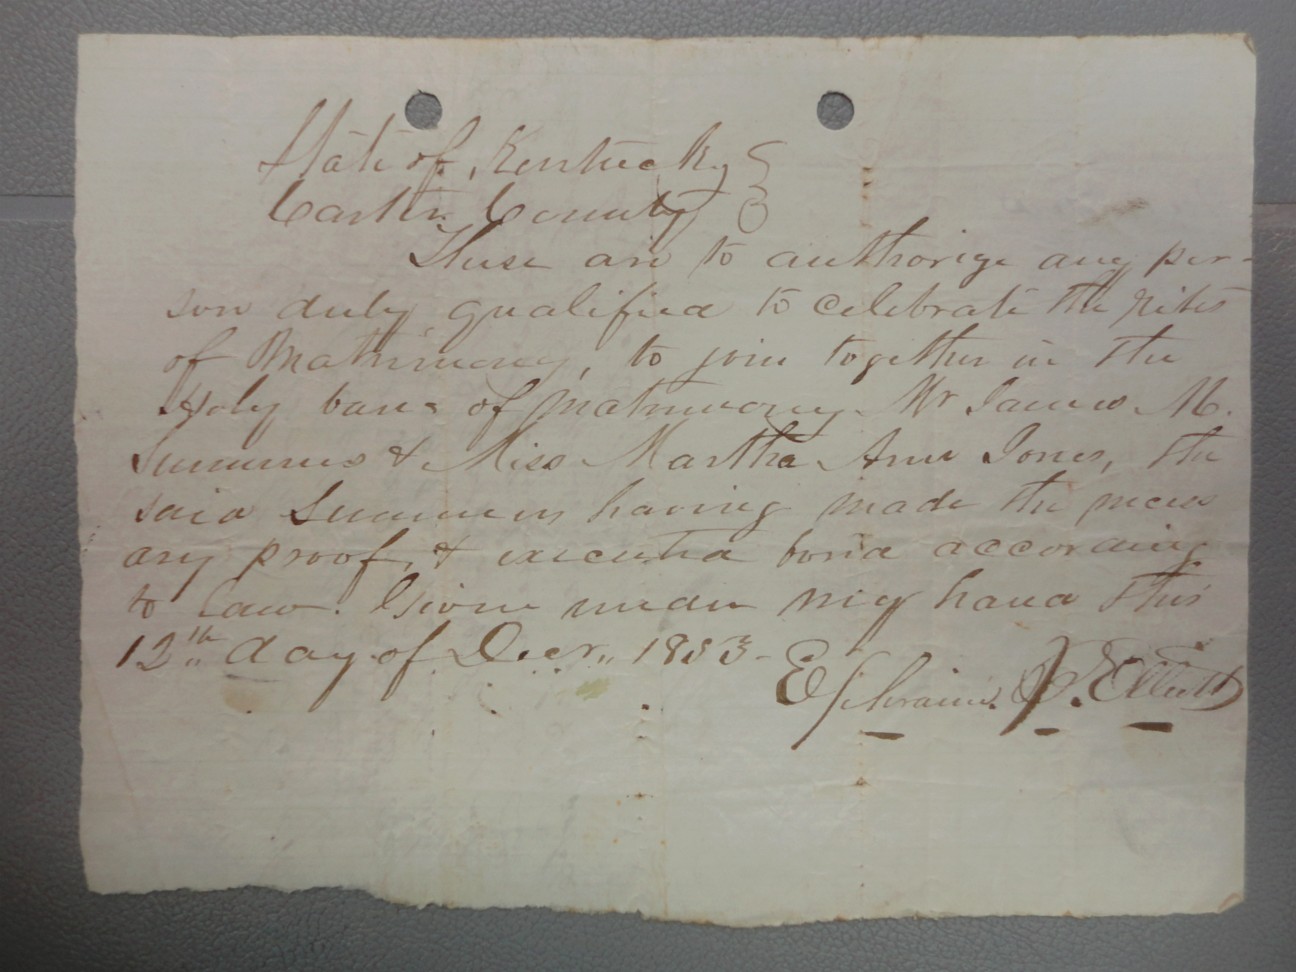 State of Kentucky
Carter County
These are to authorize any per-
son duly qualified to celebrate the rites
of Matrimony, to join together in the
Holy bans of Matrimony Mr James M.
Summers & Miss Martha Ann Jones, the
said Summers having made the necess
ary proof, & executed bond according
to law. Given under my hand this
12th day of Decr,, 1853-
Ephraim J. Elliott